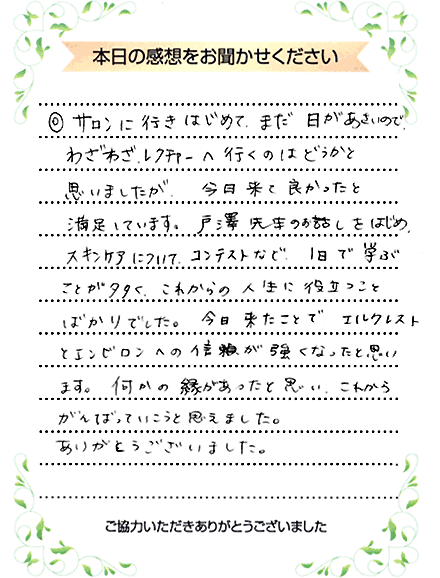 本日の感想をお聞かせください
◎ サロンに行きはじめて、まだ 日があさいので、
わざわざ、レクチャーへ行くのはどうかと
思いましたが、今日来て良かったと
満足しています。戸澤先生のお話しをはじめ、
スキンケアについて、コンテストなど、1日で学ぶ
ことが多く、これからの人生に役立つこと
ばかりでした。今日来たことで エルクレスト
とエンビロンへの信頼が強くなったと思い
ます。何かの縁があったと思い、これから
がんばっていこうと思えました。
ありがとうございました。
ご協力いただきありがとうございました